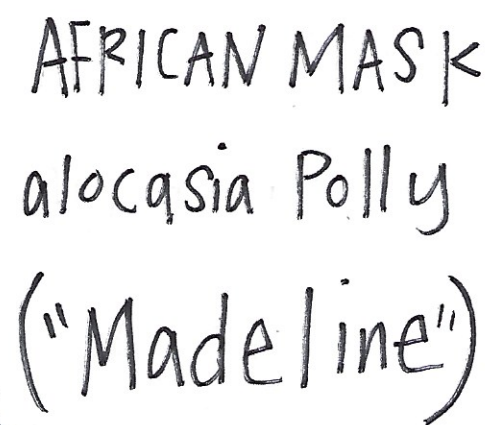 AFRICAN MASK
alocasia Polly
("Madeline")